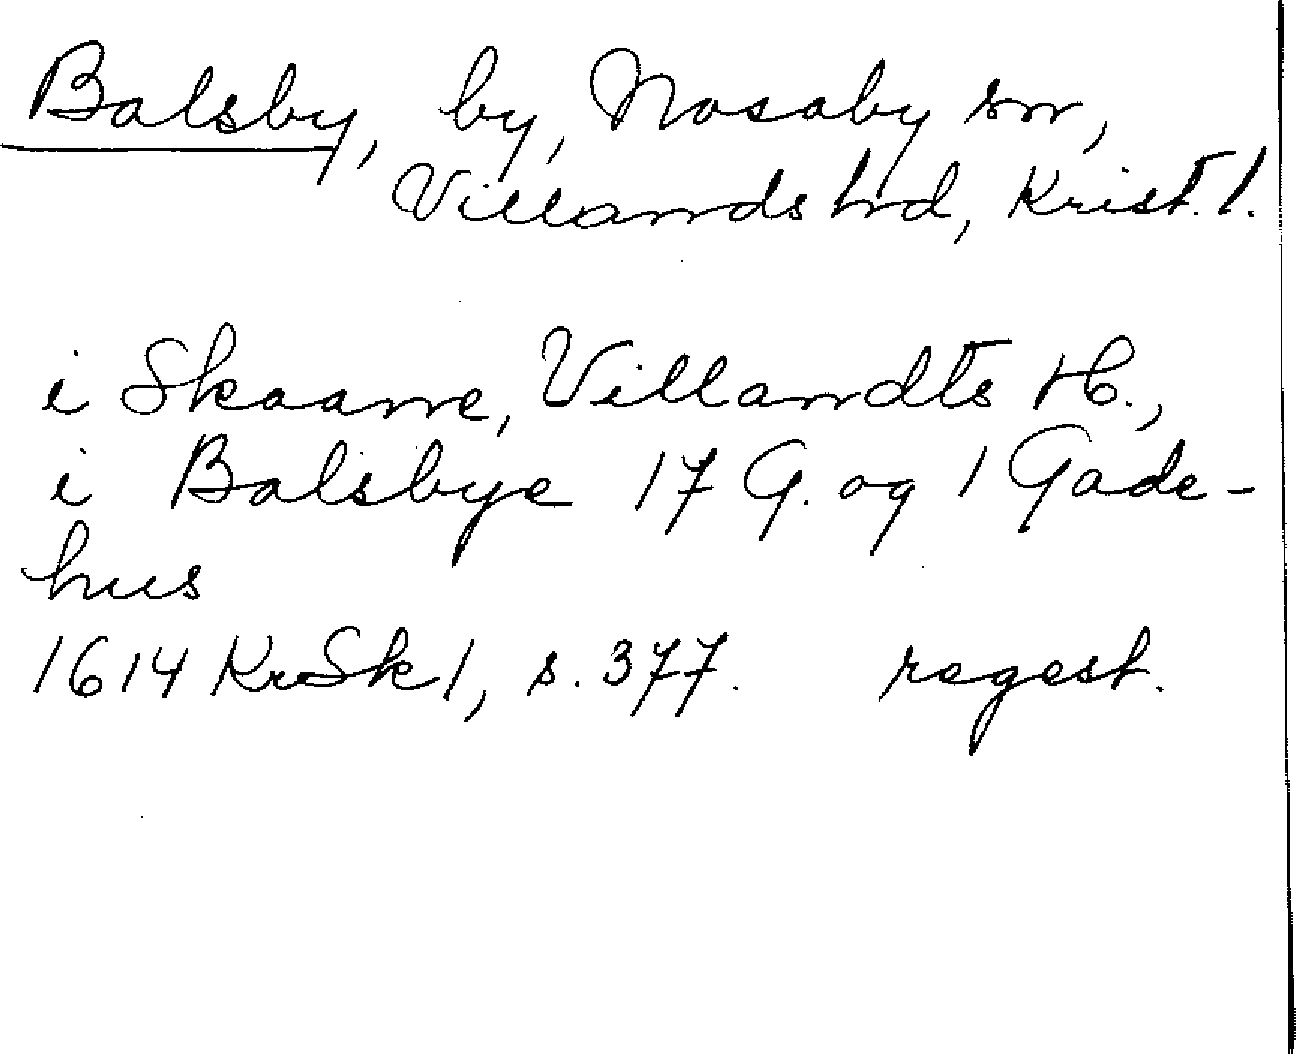 Balsby, by, Nosaby sn,
Villands hd, Krist. l.
i Skaane, Villandts H.,
i Balsbye 17 G. og 1 Gade-
hus
1614 KrSk 1, s. 377. regest.